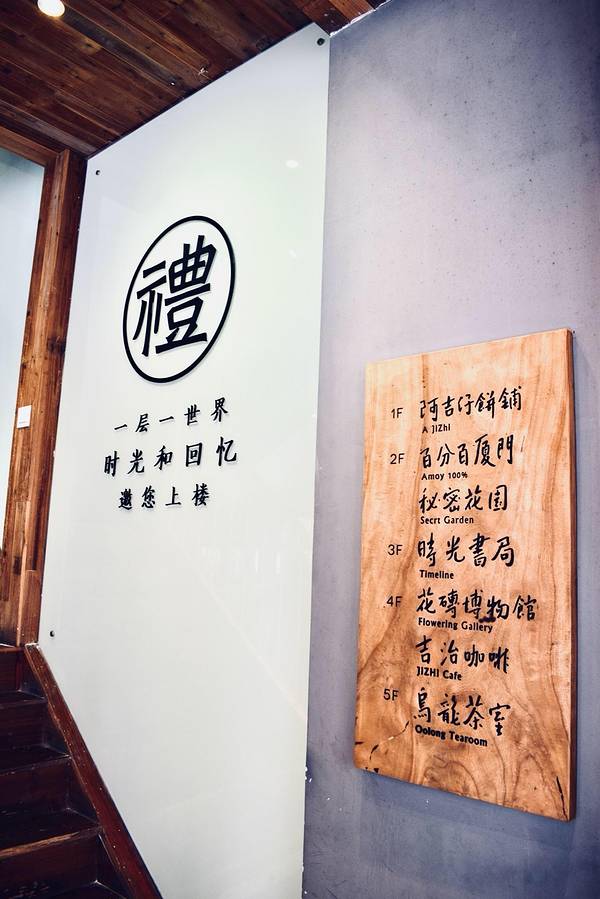 禮
一层一世界
时光和回忆
邀您上楼
1F 阿吉仔餅鋪
A JiZhi
2F 百分百厦門
Amoy 100%
秘密花园
Secrt Garden
3F 時光書局
Timeline
4F 花磚博物館
Flowering Gallery
吉治咖啡
JIZHI Cafe
5F 烏龍茶室
Oolong Tearoom